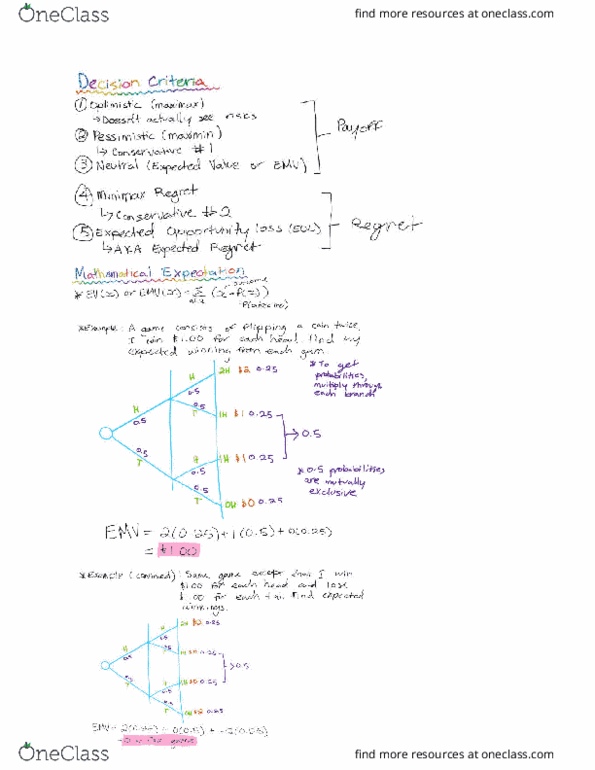 OneClass
find more resources at oneclass.com
Decision Criteria
① Optimistic (maximax)
→ Doesn't actually see risks
② Pessimistic (maximin)
↳ Conservative #1
③ Neutral (Expected Value or EMV)
Payoff
④ Minimax Regret
↳ Conservative #2
⑤ Expected Opportunity loss (EOL)
↳ AKA Expected Regret
Regret
Mathematical Expectation
outcome
* EV(x) or EMV(x) = Σ (x · P(x))
all x
* Example: A game consists of flipping a coin twice,
I win $1.00 for each head. Find my
expected winning from each game.
* To get
probabilities,
multiply through
each branch
H 0.5
T 0.5
H 0.5
T 0.5
H 0.5
T 0.5
2H $2 0.25
1H $1 0.25
1H $1 0.25
0H $0 0.25
0.5
* 0.5 probabilities
are mutually
exclusive
EMV = 2(0.25) + 1(0.5) + 0(0.25)
= $1.00
* Example (continued): Same game except I win
$1.00 for each head and lose
$1.00 for each tail. Find expected
winnings.
H 0.5
0.5
0.5
0.5
0.5
2H $2 0.25
0.25
0.25
0.25
0.5
EMV = 2(0.25) + 0(0.5) + -2(0.25)
OneClass
find more resources at oneclass.com